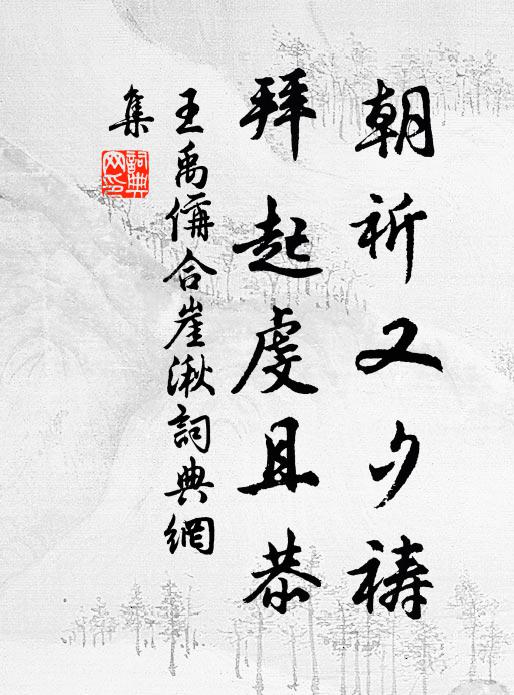 朝祈又夕祷
拜起虔且恭
王禹偁合崖湫詞典網
集
詞典
网印